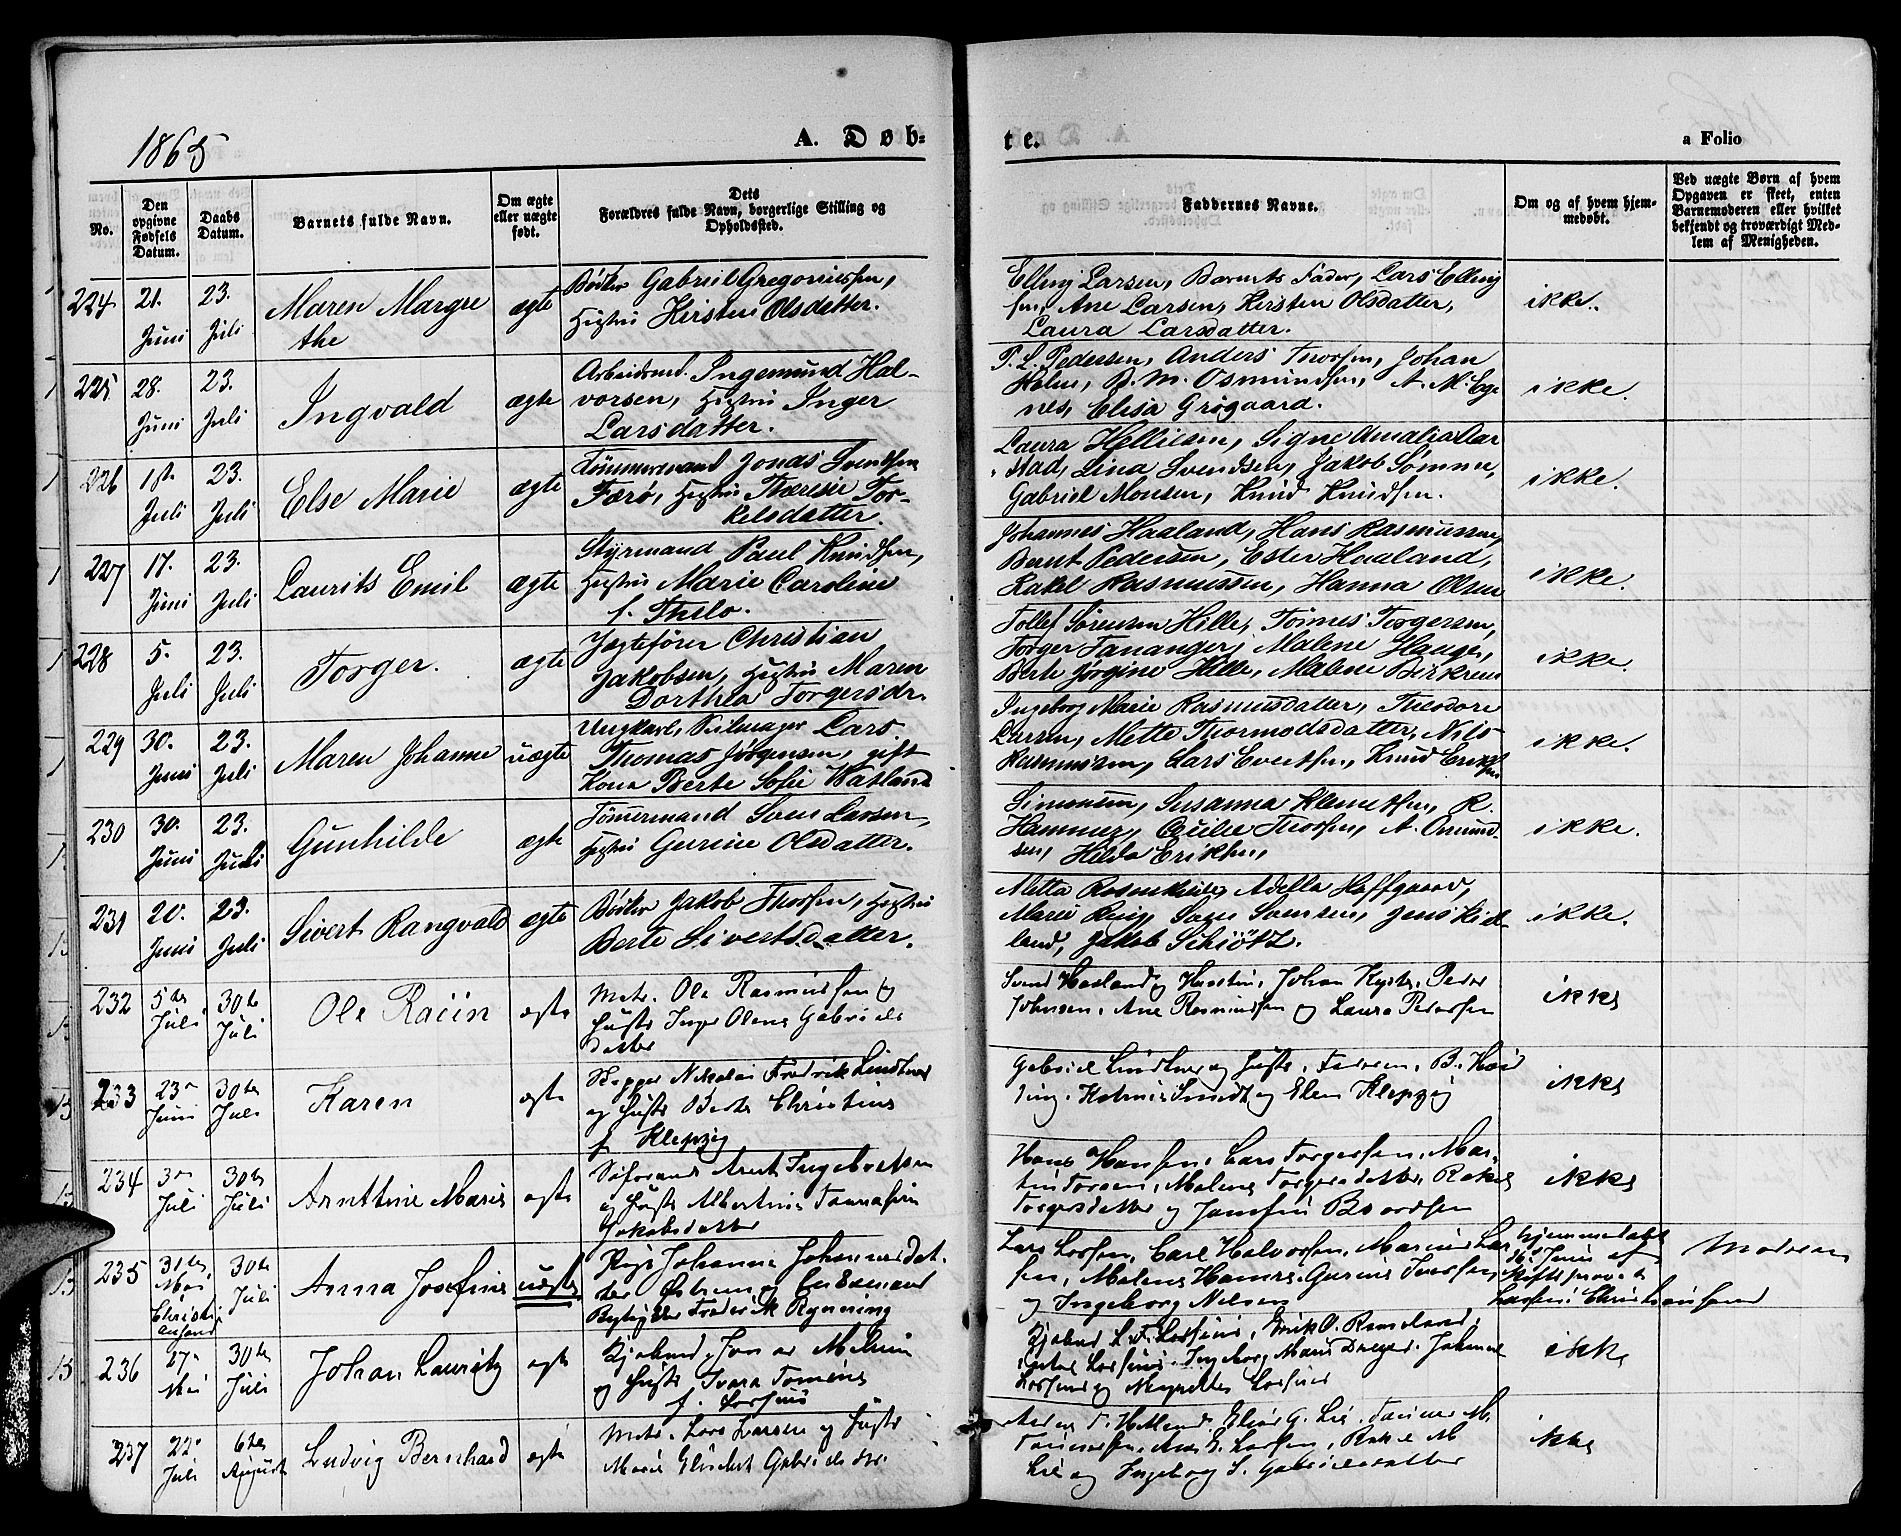 1865
A. Døb=
te.
a Folio
No.
Den opgivne Fødsels Datum.
Daabs Datum.
Barnets fulde Navn.
Om ægte eller uægte født.
Dets Forældres fulde Navn, borgerlige Stilling og Opholdssted.
Faddernes Navne.
Om og af hvem hjemmedøbt.
Ved uægte Børn af hvem Opgaven er skeet, enten Barnemoderen eller hvilket bekjendt og troværdigt Medlem af Menigheden.
224 21. Juni 23. Juli Maren Margrethe ægte
Bødker Gabriel Gregoriussen,
Hustru Kirsten Olsdatter.
Elling Larsen, Barnets Fader, Lars Elling
sen, Ane Larsen, Kirsten Olsdatter,
Laura Larsdatter.
ikke.
225 28. Juni 23. Juli Ingvald ægte
Arbeidsmd. Ingemund Hal-
vorsen, Hustru Inger
Larsdatter.
P. L. Pedersen, Anders Thorsen, Johan
Holm, B. M. Osmundsen, A. M. Ege
nes, Elisa Grøgaard.
ikke.
226 1ste Juli 23. Juli Else Marie ægte
Tømmermand Jonas Svendsen
Færø, Hustru Therese Tor-
kelsdatter.
Laura Helliesen, Signe Amalia Aar
stad, Lina Svendsen, Jakob Sømme,
Gabriel Monsen, Knud Knudsen.
ikke.
227 17. Juni 23. Juli Laurits Emil ægte
Styrmand Paul Knudsen,
Hustru Marie Caroline
f. Thilo.
Johannes Haaland, Hans Rasmussen,
Bernt Pedersen, Ester Haaland,
Rakel Rasmussen, Hanna Olsen
ikke.
228 5. Juli 23. Juli Torger. ægte
Jægtefører Christian
Jakobsen, Hustru Maren
Dorthea Torgersdr.
Tollef Sørensen Hille, Tønnes Torgersen,
Torger Tananger, Malene Hauge,
Berte Jørgine Hille, Malene Birkrem
ikke.
229 30. Juni 23. Juli Maren Johanne uægte
Ungkarl, Seilmager Lars
Thomas Jørgensen, gift
Kona Berte Sofie Watland
Ingeborg Marie Rasmusdatter, Theodore
Larsen, Mette Thormodsdatter, Nils
Rasmussen, Lars Evertsen, Knud Eriksen
ikke.
230 30. Juni 23. Juli Gunhilde ægte
Tømmermand Sven Larsen,
Hustru Gurine Olsdatter.
Simonsen, Susanna Klemetsen, R.
Hammer, Cecilie Thorsen, A. Omund
sen, Hilda Eriksen,
ikke.
231 20. Juni 23. Juli Sivert Rangvald ægte
Bødker Jakob Thorsen, Hustru
Berte Sivertsdatter.
Metta Rosenkilde, Adella Hoffgaard,
Marie Svensen, Jens Kid
land, Jakob Schiötz.
ikke.
232 5te Juli 30te Juli Ole Raiin ægte
Matr. Ole Rasmussen og
Hustr Inger Olene Gabriels
datter
Svend Haaland og Hustru, Johan Kyste, Peder
Johnsen, Ane Rasmussen og Laura Pedersen
ikke
233 23de Juni 30te Juli Karen ægte
Skipper Nikolai Fredrik Lindtner
og Hustr Berte Christine
f. Klepzig
Gabriel Lindtner og Hustr, Faderen, B. Hød
ing, Katrine Smidt og Elen Klepzig
ikke
234 3de Juli 30te Juli Arnttine Marie ægte
Søforende Arent Ingebretsen
og Hustr Albertine Tomasine
Jakobsdatter
Hans Hansen, Lars Torgersen, Mar
tin Torsen, Malene Torgersdatter, Rakel
Torgersdatter og Josefine Baardsen
ikke
235 31te Mai Christiansand 30te Juli Anna Josefine uægte
Pige Johanne Johannesdat
ter Østrem og Exam
Frederik Rynning
Lars Larsen, Carl Halvorsen, Marius Lar
sen, Malene Hamre, Gurine Iversen
og Ingeborg Nilsen
hjemmedøbt
Juni af
Stiftsprovst
Lassen i Christiansand
Moderen
236 27de Mai 30te Juli Johan Lauritz ægte
Kjøbmd. Jon Melvin
og Hustr Tomine
f. Larsen
Kjøbmd L. T. Larsen, Erik O. Ramsland,
Larsen, Ingeborg Marie Dreyer, Johanne
Larsen og Larsen
ikke
237 22de Juli 6te August Ludvig Bernhard ægte
Matr. Lars Larsen og Hustr
Marie Elisabet Gabrielsdtr.
T. Hetland, Elias G. Lie, M.
Larsen, Rakel M
Lie og Ingeborg S. Gabrielsdatter
ikke